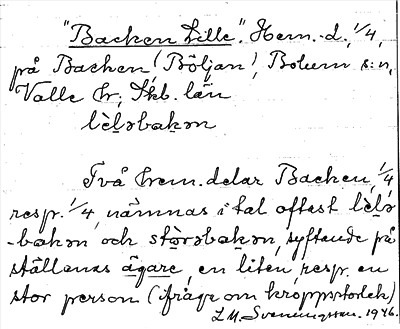 "Backen Lille". Hem.-d., 1/4,
på Backen (Böljan), Bolum s:n,
Valle hr; Skb. län
lèlǝbakǝn
Två hem.delar Backen, 1/4
resp. 1/4, nämnas i tal oftast lèlǝ
-bakǝn och stòrǝbakǝn, syftande på
ställenas ägare, en liten, resp. en
stor person (fråga om kroppsstorlek)
L.M. Svenungsson. 1946.